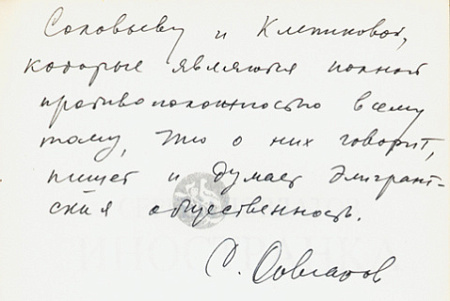 Соловьеву и Клепиковой,
которые являются полной
противоположностью всему
тому, что о них говорит,
пишет и думает эмигрант-
ская общественность.
С. Довлатов